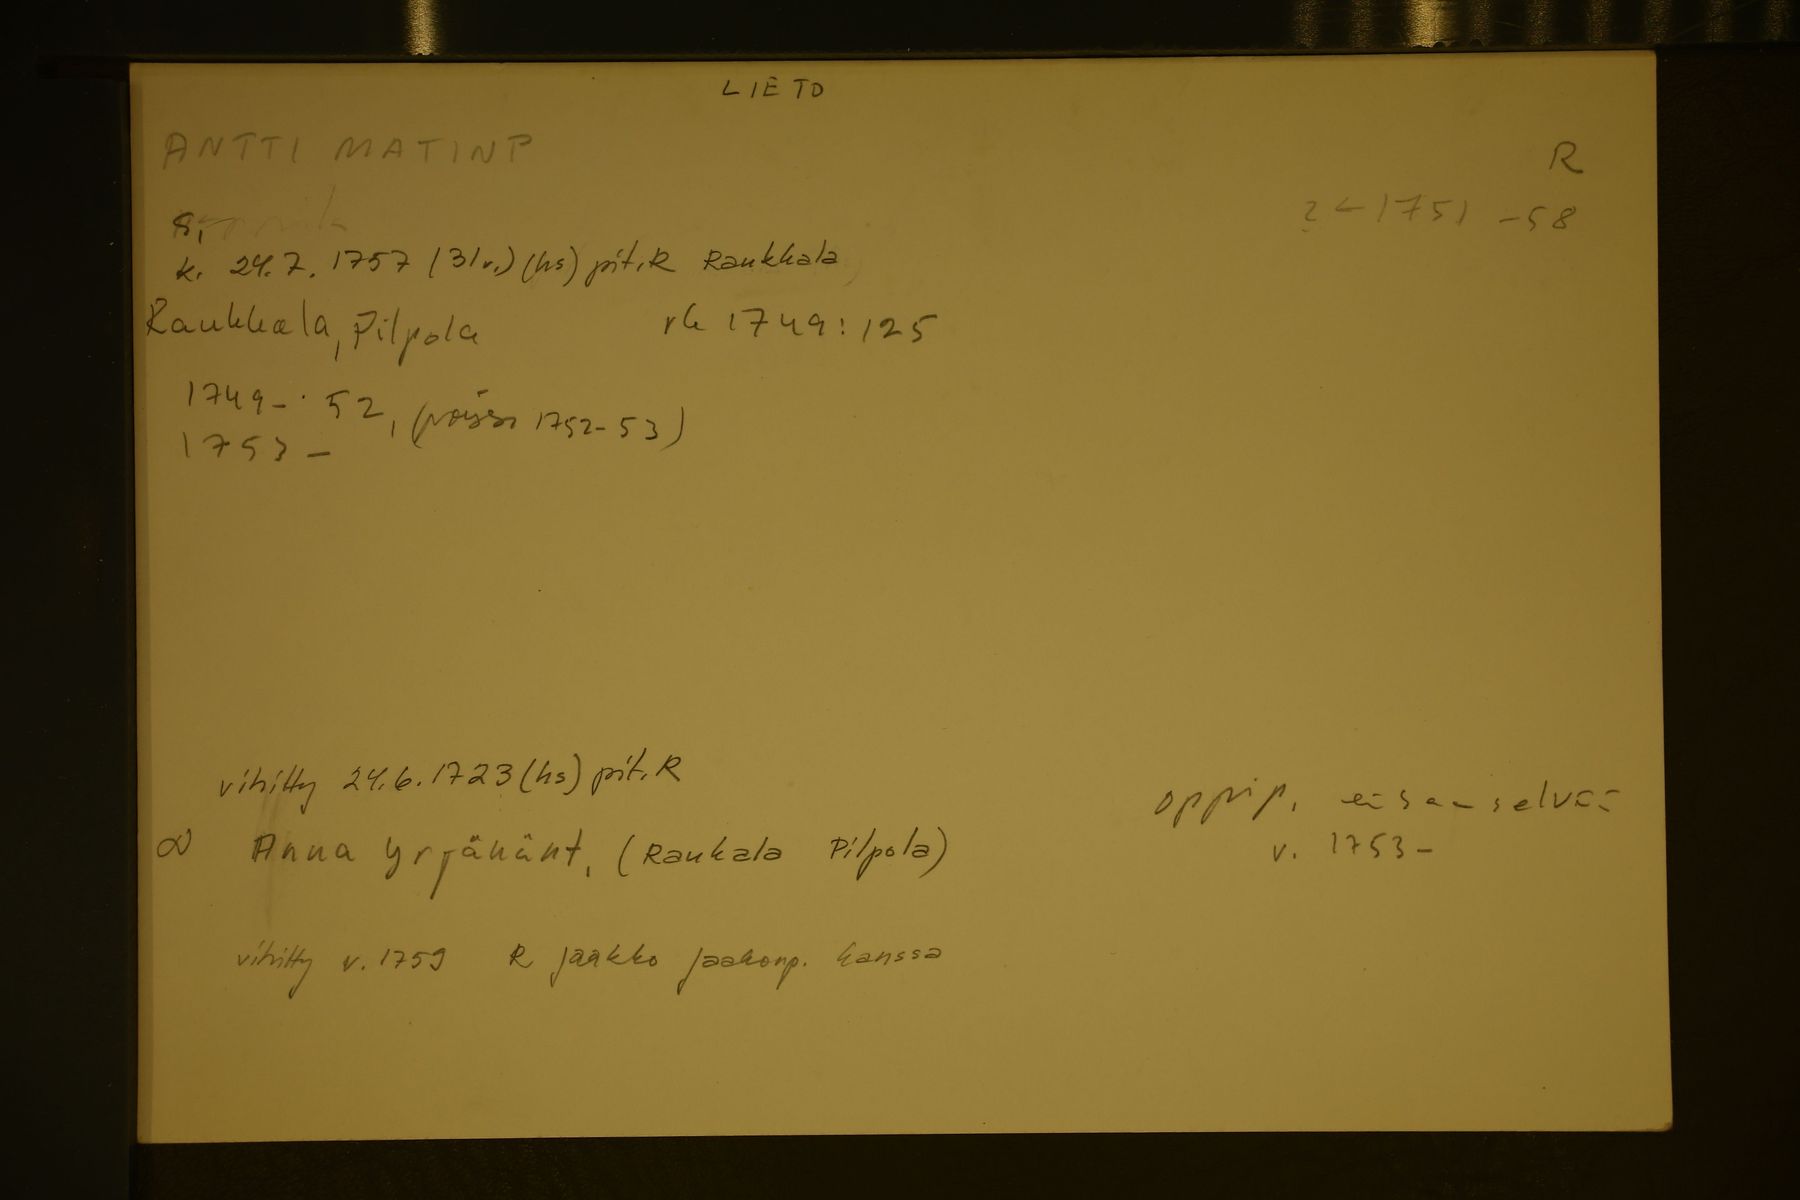 LIETO
ANTTI MATINP
R
s.
? ← 1751 -58
k. 24.7.1757 (31v.) (hs) pit.R Raukkala
Raukkala, Pilpola rk 1749:125
1749-52, (poissa 1752-53)
1753-
vihitty 24.6.1723 (hs) pit.R
oppip. ei saa selvää
∞ Anna Yrjänänt. (Raukala Pilpola)
v. 1753-
vihitty v. 1759 R Jaakko Jaakonp. kanssa